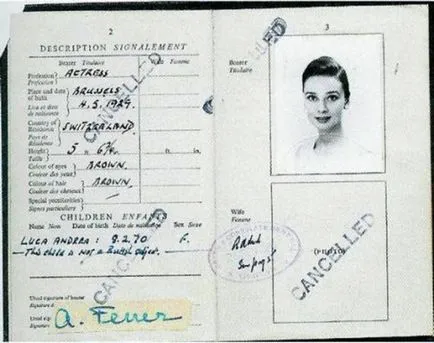 2
DESCRIPTION SIGNALEMENT
Bearer Titulaire Wife Femme
Profession ACTRESS
Profession
Place and date BRUSSELS
of birth
Lieu et date 4.5.1929.
de naissance
Country of SWITZERLAND
Residence
Pays de
Résidence
Height 5 ft. in.
Taille
Colour of eyes BROWN
Couleur des yeux
Colour of hair BROWN
Couleur des cheveux
Special peculiarities
Signes particuliers
CANCELLED
CHILDREN ENFANTS
Name Nom Date of birth Date de naissance Sex Sexe
LUCA ANDREA: 8.2.70
This child is not a British subject.
CANCELLED
Usual signature of bearer
Signature
Usual
Signature
3
Bearer
Titulaire
CANCELLED
Wife
Femme
(PHOTO)
CANCELLED